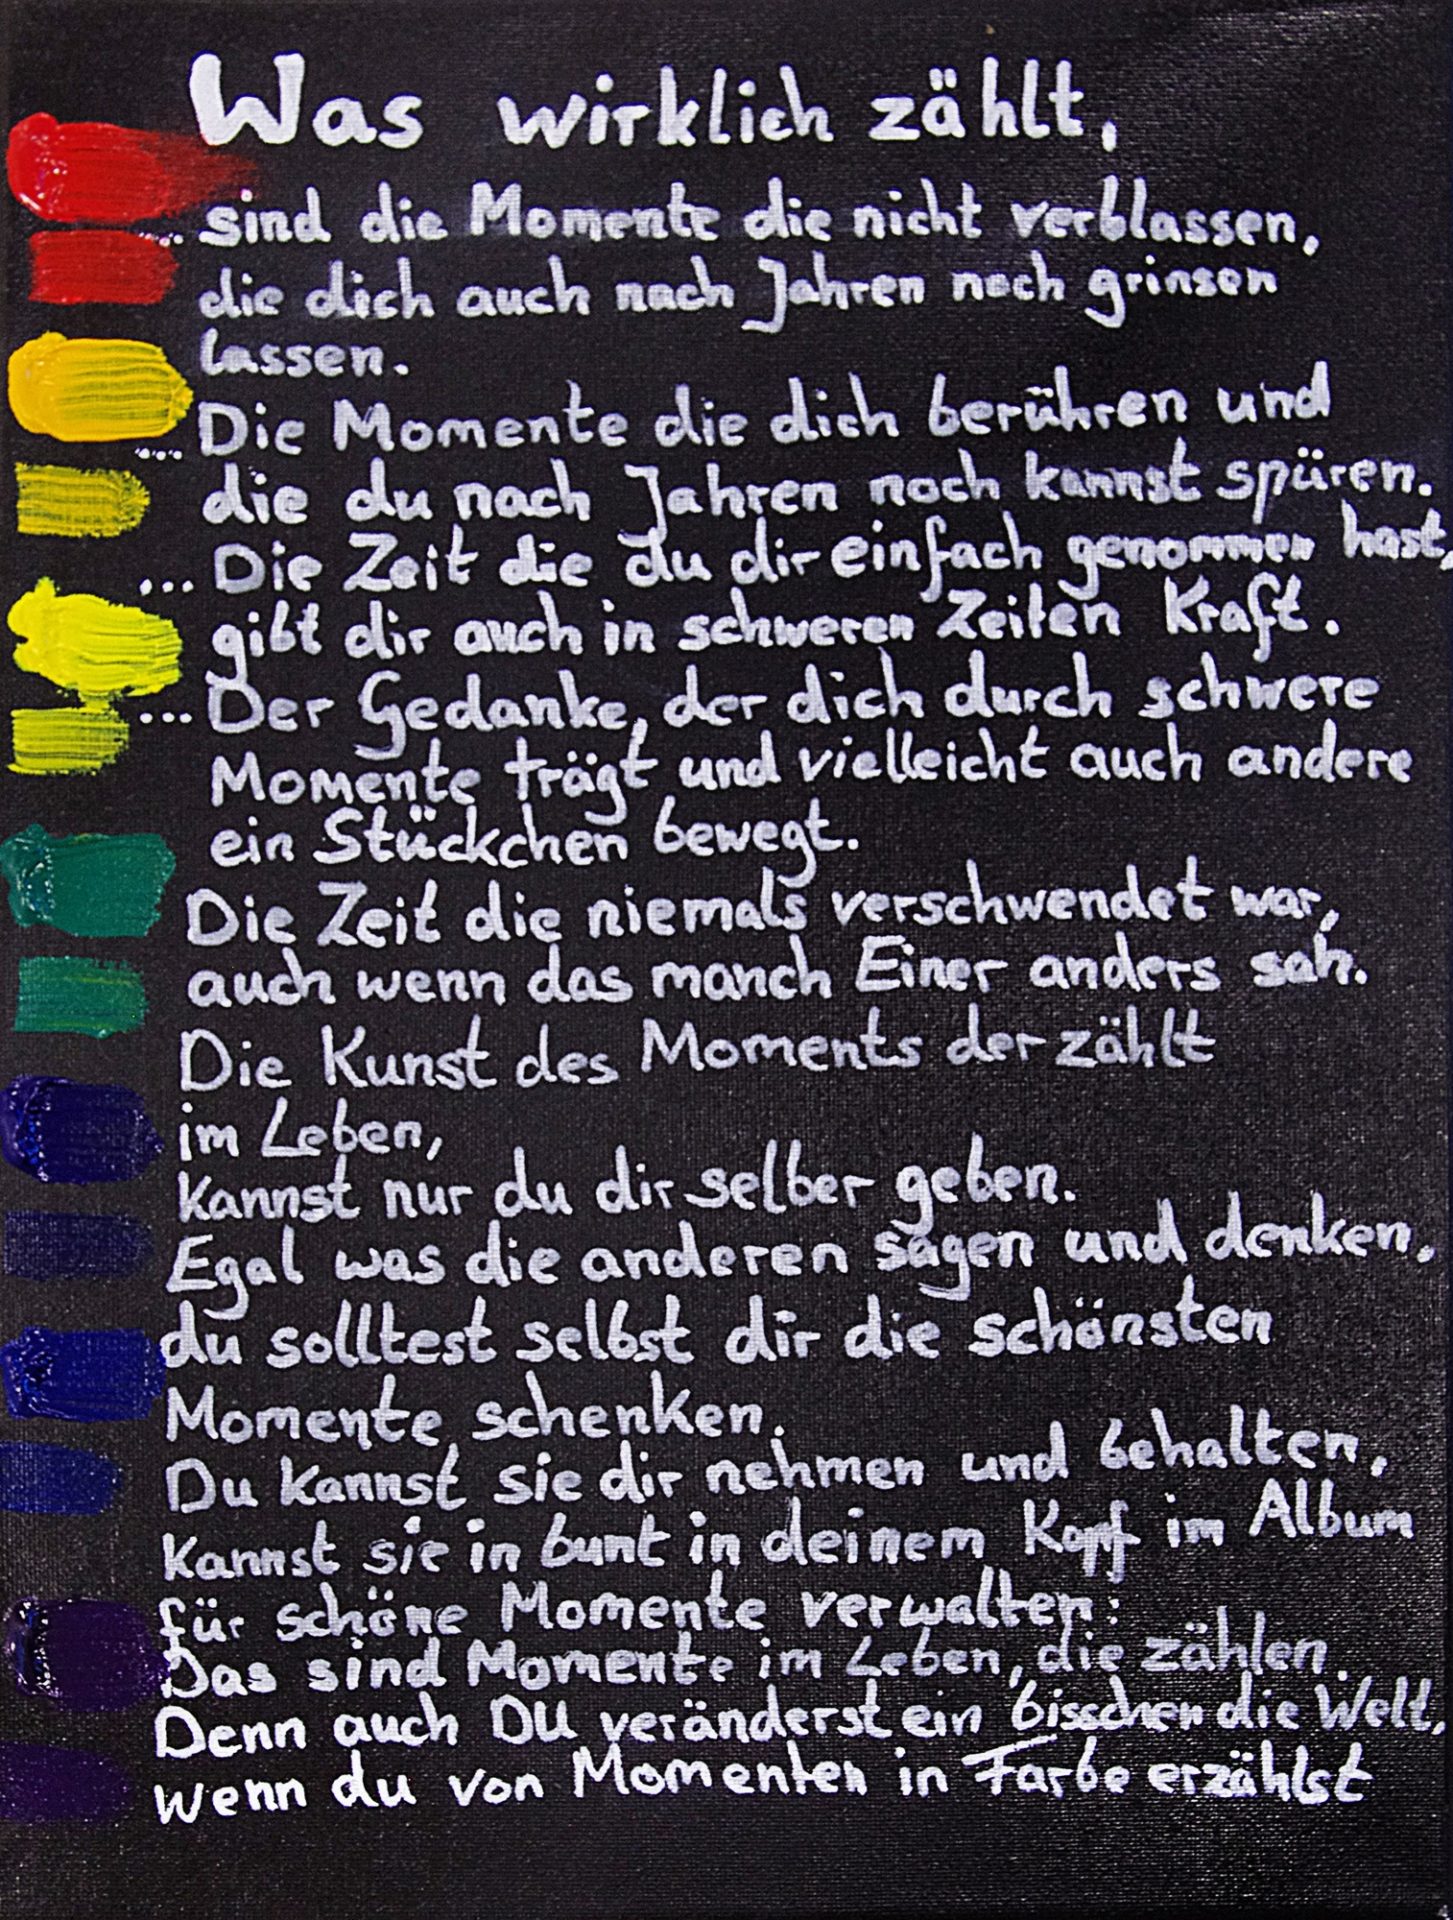 Was wirklich zählt,
... sind die Momente die nicht verblassen,
die dich auch nach Jahren noch grinsen
lassen.
... Die Momente die dich berühren und
die du nach Jahren noch kannst spüren.
... Die Zeit die du dir einfach genommen hast,
gibt dir auch in schweren Zeiten Kraft.
... Der Gedanke, der dich durch schwere
Momente trägt und vielleicht auch andere
ein Stückchen bewegt.
Die Zeit die niemals verschwendet war,
auch wenn das manch Einer anders sah.
Die Kunst des Moments der zählt
im Leben,
kannst nur du dir selber geben.
Egal was die anderen sagen und denken,
du solltest selbst dir die schönsten
Momente schenken.
Du kannst sie dir nehmen und behalten,
kannst sie in bunt in deinem Kopf im Album
für schöne Momente verwalten:
Das sind Momente im Leben, die zählen.
Denn auch DU veränderst ein bisschen die Welt,
wenn du von Momenten in Farbe erzählst